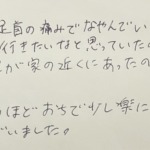 足首の痛みでなやんでい
行きたいなと思っていた
が家の近くにあったの
ほどおちで少し楽に
いました。